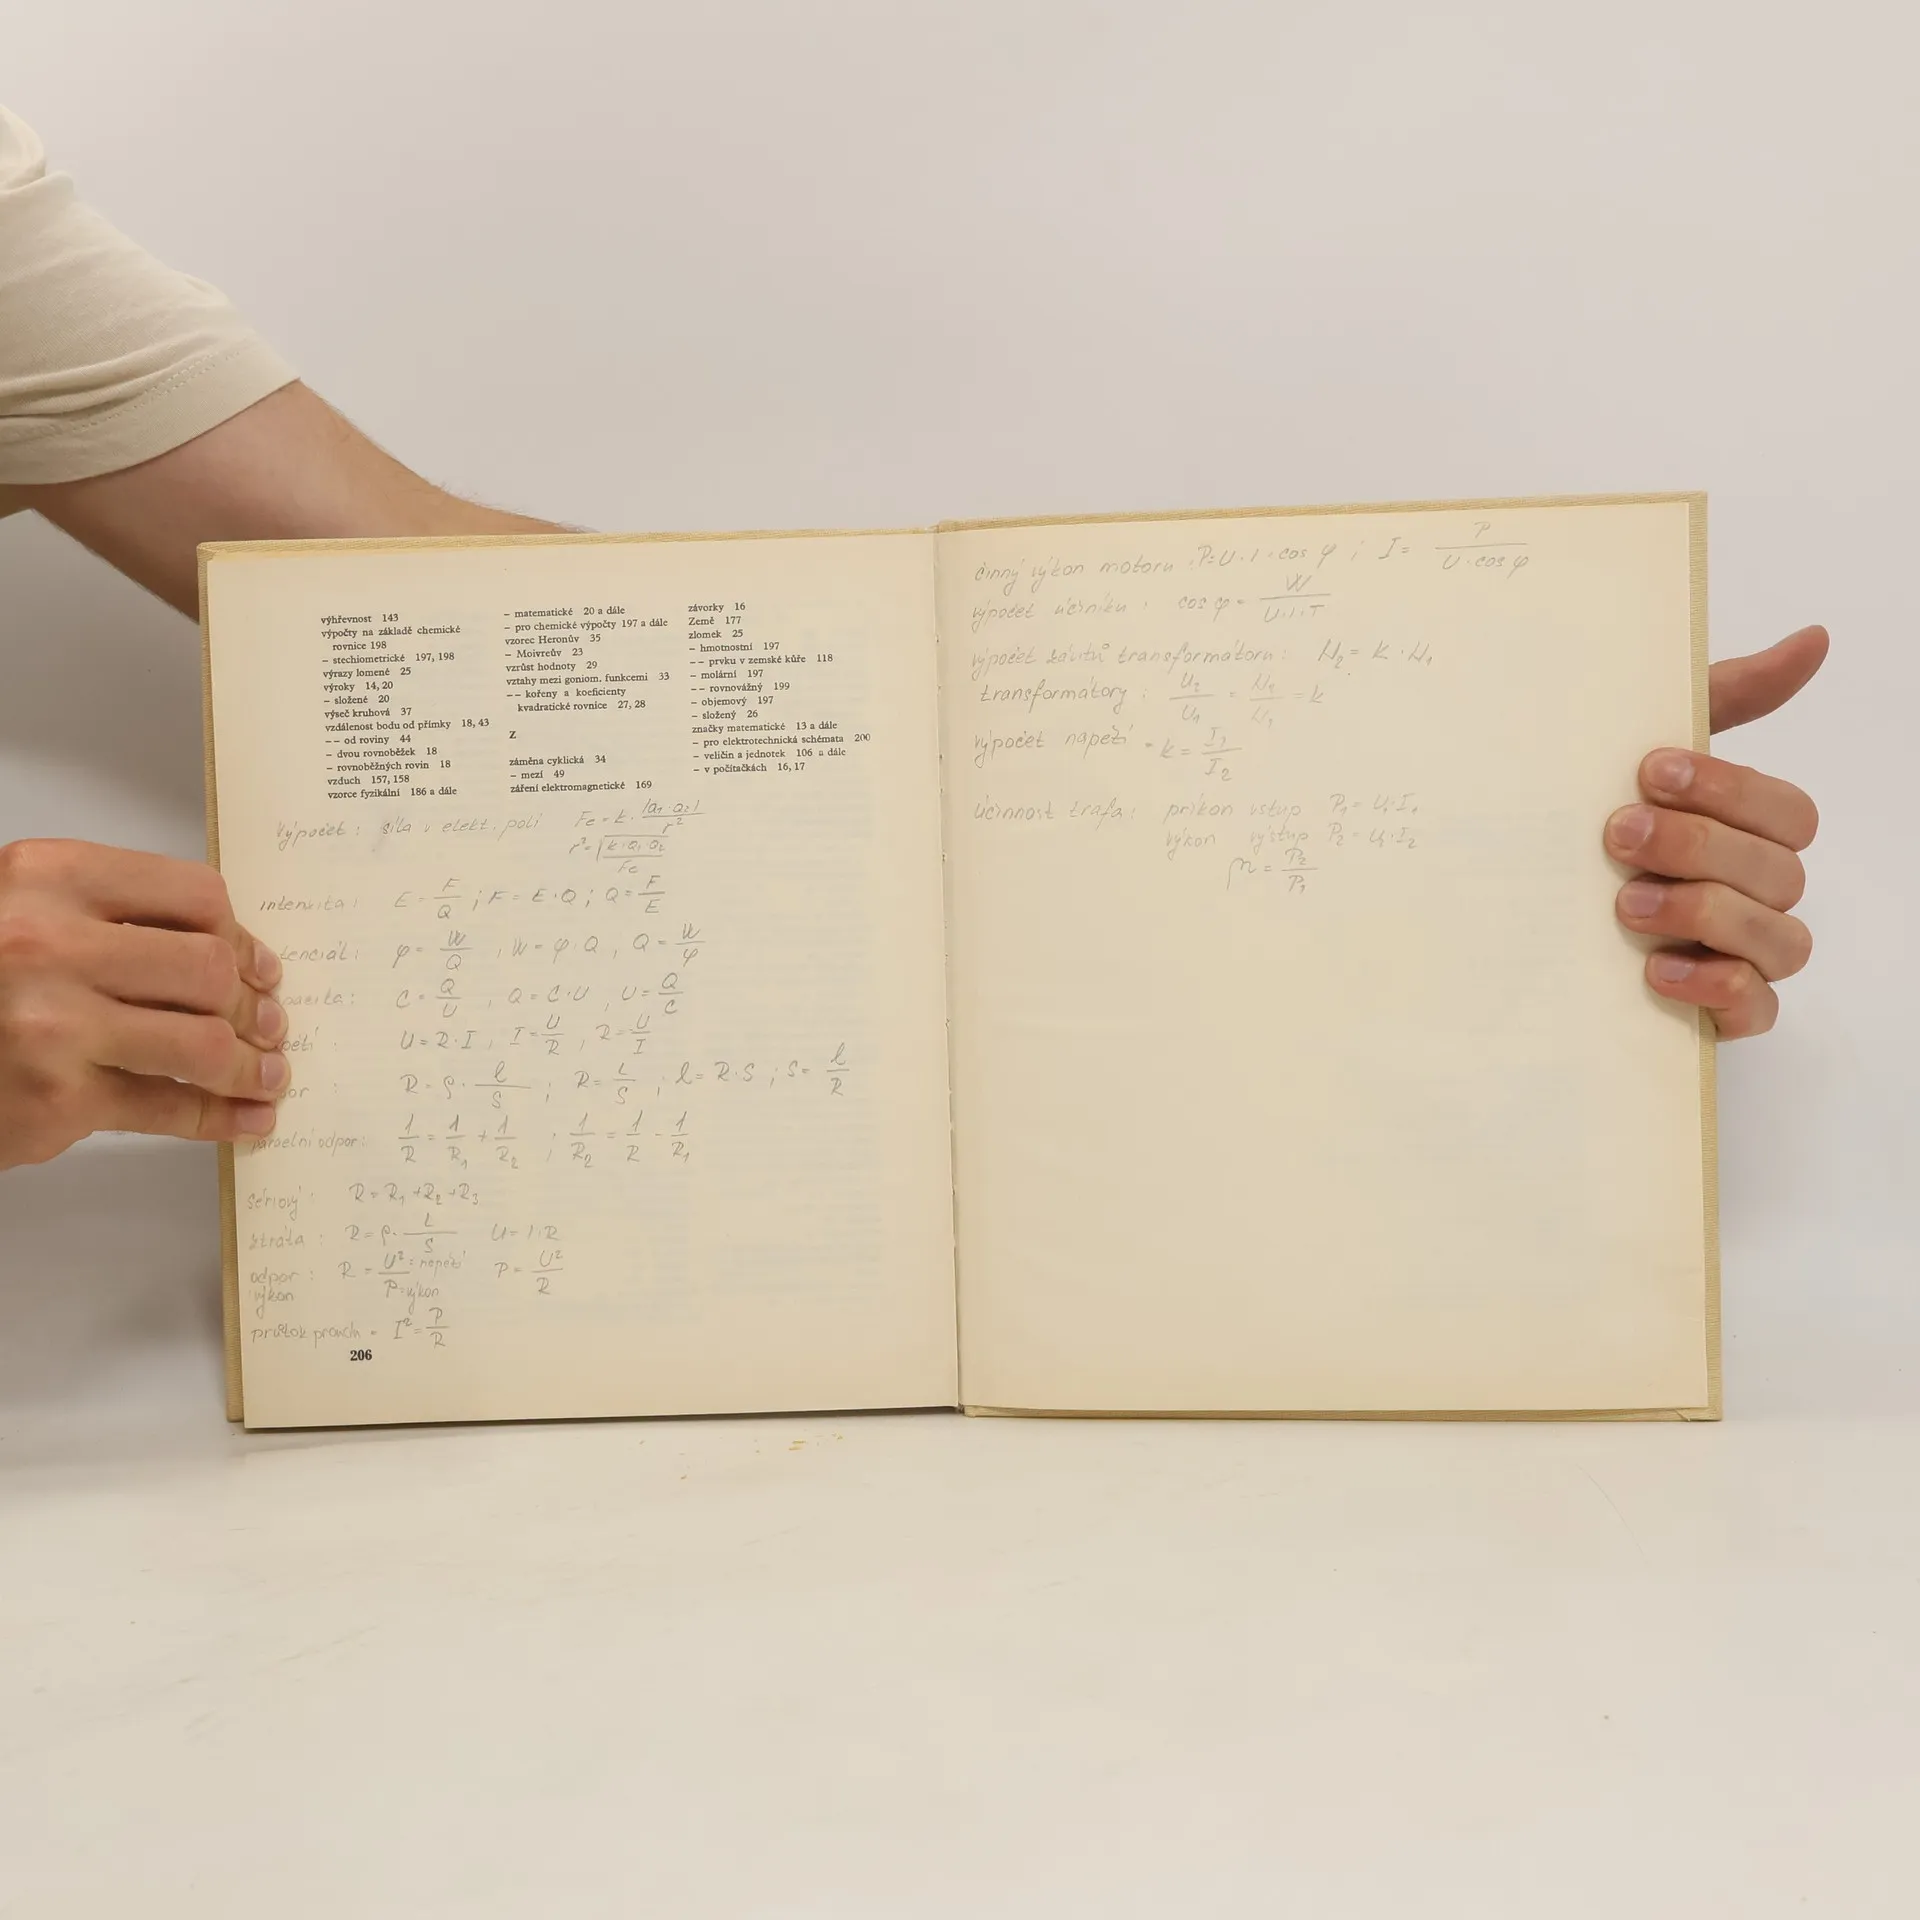 výhřevnost 143
výpočty na základě chemické
rovnice 198
– stechiometrické 197, 198
výrazy lomené 25
výroky 14, 20
– složené 20
výseč kruhová 37
vzdálenost bodu od přímky 18, 43
– – od roviny 44
– dvou rovnoběžek 18
– rovnoběžných rovin 18
vzduch 157, 158
vzorce fyzikální 186 a dále
– matematické 20 a dále
– pro chemické výpočty 197 a dále
vzorec Heronův 35
– Moivreův 23
vzrůst hodnoty 29
vztahy mezi goniom. funkcemi 33
– – kořeny a koeficienty
kvadratické rovnice 27, 28
Z
záměna cyklická 34
– mezí 49
záření elektromagnetické 169
závorky 16
Země 177
zlomek 25
– hmotnostní 197
– – prvku v zemské kůře 118
– molární 197
– – rovnovážný 199
– objemový 197
– složený 26
značky matematické 13 a dále
– pro elektrotechnická schémata 200
– veličin a jednotek 106 a dále
– v počítačkách 16, 17
výpočet: síla v elekt. poli Fe = k · |Q1·Q2| / r²
r² = √(k·Q1·Q2 / Fe)
intenzita: E = F/Q ; F = E·Q ; Q = F/E
tenciál: φ = W/Q , W = φ·Q , Q = W/φ
pacita: C = Q/U , Q = C·U , U = Q/C
pětí : U = R·I , I = U/R , R = U/I
por : R = ρ · l/S ; R = L/S ; l = R·S ; S = l/R
odpor: 1/R = 1/R1 + 1/R2 ; 1/R2 = 1/R - 1/R1
sériový: R = R1 + R2 + R3
ztráta : R = ρ · L/S U = I·R
odpor : R = U² = napětí / P = výkon P = U²/R
výkon
průtok proudu = I² = P/R
206
činný výkon motoru : P = U·I·cos φ ; I = P / U·cos φ
výpočet účiníku : cos φ = W / U·I·T
výpočet závitů transformátoru: N2 = k · N1
transformátory : U2/U1 = N2/N1 = k
výpočet napětí = k = I1/I2
účinnost trafa: příkon vstup P1 = U·I1
výkon výstup P2 = U·I2
= P2/P1